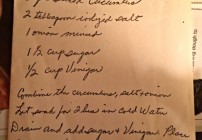 sliced Cucumbers
2 tablespoon iodized salt
1 onion minced
1 1/2 cup sugar
1/2 cup Vinegar
Combine the cucumbers, salt & onion
Let soak for 2 hrs in cold Water
Drain and add sugar & Vinegar Place